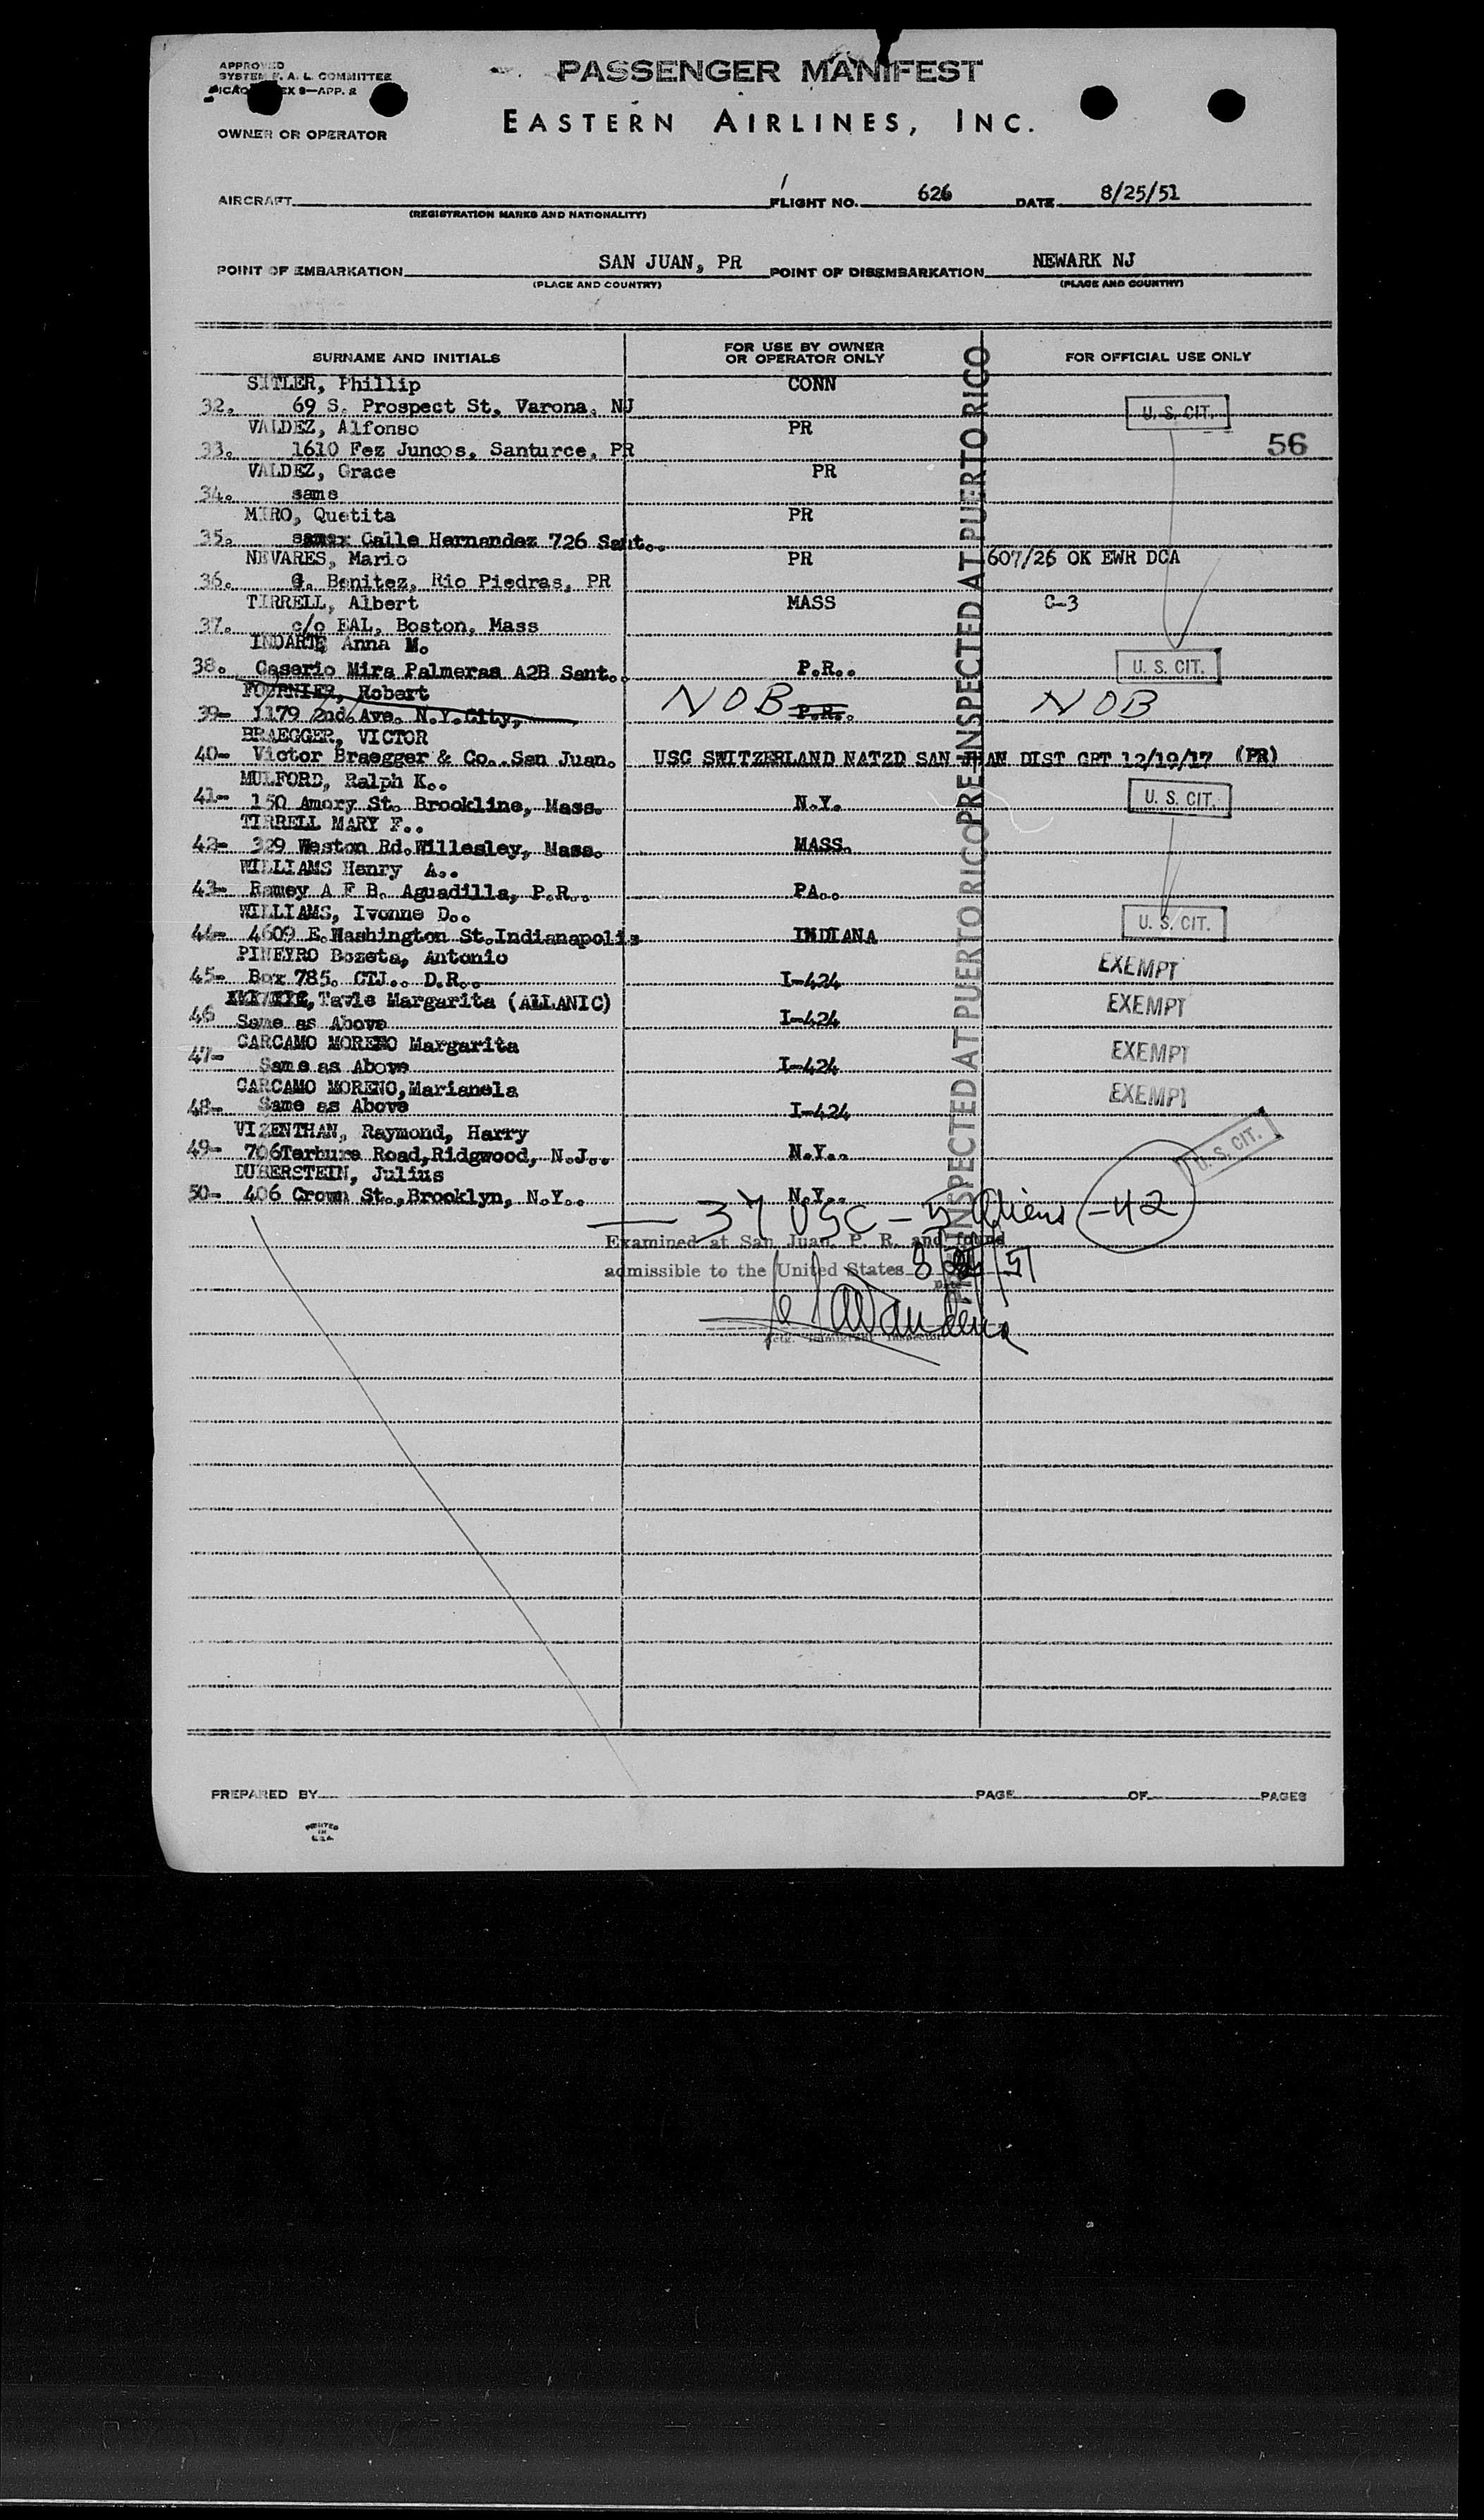 APPROVED
SYSTEM F. A. L. COMMITTEE
ICAO EX 9—APP. 2
PASSENGER MANIFEST
EASTERN AIRLINES, INC.
OWNER OR OPERATOR
AIRCRAFT
(REGISTRATION MARKS AND NATIONALITY)
FLIGHT NO. 626 DATE 8/25/51
POINT OF EMBARKATION SAN JUAN, PR POINT OF DISEMBARKATION NEWARK NJ
(PLACE AND COUNTRY) (PLACE AND COUNTRY)
SURNAME AND INITIALS FOR USE BY OWNER OR OPERATOR ONLY FOR OFFICIAL USE ONLY
Phillip CONN
32. 69 S. Prospect St. Varona, NJ U. S. CIT.
VALDEZ, Alfonso PR
33. 1610 Fez Juncos, Santurce, PR 56
VALDEZ, Grace PR
34. same
MIRO, Quetita PR
35. Calle Hernandez 726 Sant..
NEVARES, Mario PR 607/26 OK EWR DCA
36. G. Benitez, Rio Piedras, PR
TIRRELL, Albert MASS C-3
37. c/o EAL, Boston, Mass
INDARTE Anna M.
38. Caserio Mira Palmeras A2B Sant.. P.R.. U. S. CIT.
FOURNIER, Robert
39- 1179 2nd. Ave. N.Y.City, NOB P.R.. NOB
BRAEGGER, VICTOR
40- Victor Braegger & Co..San Juan. USC SWITZERLAND NATZD SAN JUAN DIST CRT 12/19/17 (PR)
MULFORD, Ralph K..
41- 150 Amory St. Brookline, Mass. N.Y. U. S. CIT.
TIRRELL MARY F..
42- 329 Weston Rd.Willesley, Mass. MASS.
WILLIAMS Henry A..
43- Ramey A F B. Aguadilla, P.R.. PA..
WILLIAMS, Ivonne D..
44- 4609 E.Washington St.Indianapolis INDIANA U. S. CIT.
PINEYRO Bozeta, Antonio
45- Box 785. CTJ.. D.R.. I-424 EXEMPT
Tavle Margarita (ALLANIC)
46 Same as Above I-424 EXEMPT
CARCAMO MORENO Margarita
47- Same as Above I-424 EXEMPT
CARCAMO MORENO,Marianela
48- Same as Above I-424 EXEMPT
VIZENTHAN, Raymond, Harry
49- 706Terhure Road,Ridgwood, N.J.. N.Y.. U. S. CIT.
DUBERSTEIN, Julius
50- 406 Crown St.,Brooklyn, N.Y.. N.Y..
PRE-INSPECTED AT PUERTO RICO
PRE-INSPECTED AT PUERTO RICO
— 37 USC - 5 Aliens - 42
Examined at San Juan, P. R. and found
admissible to the United States 8/ /51
Actg. Immigrant Inspector.
PREPARED BY PAGE OF PAGES
PRINTED
IN
U.S.A.